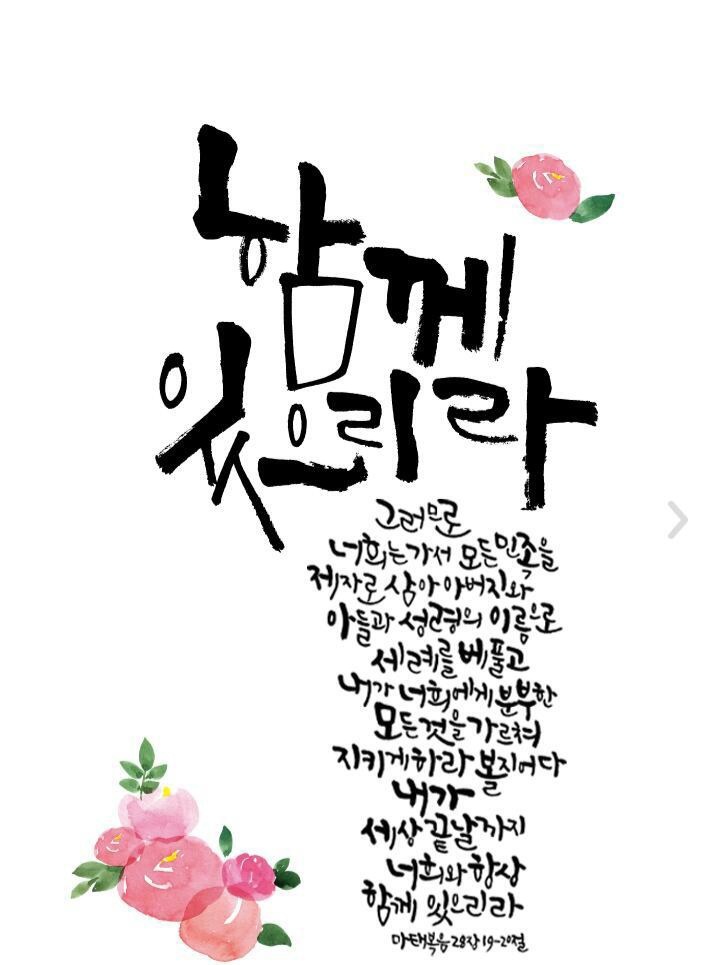 함께
있으리라
그러므로
너희는 가서 모든 민족을
제자로 삼아 아버지와
아들과 성령의 이름으로
세례를 베풀고
내가 너희에게 분부한
모든 것을 가르쳐
지키게 하라 볼지어다
내가
세상 끝날까지
너희와 항상
함께 있으리라
마태복음 28장 19-20절